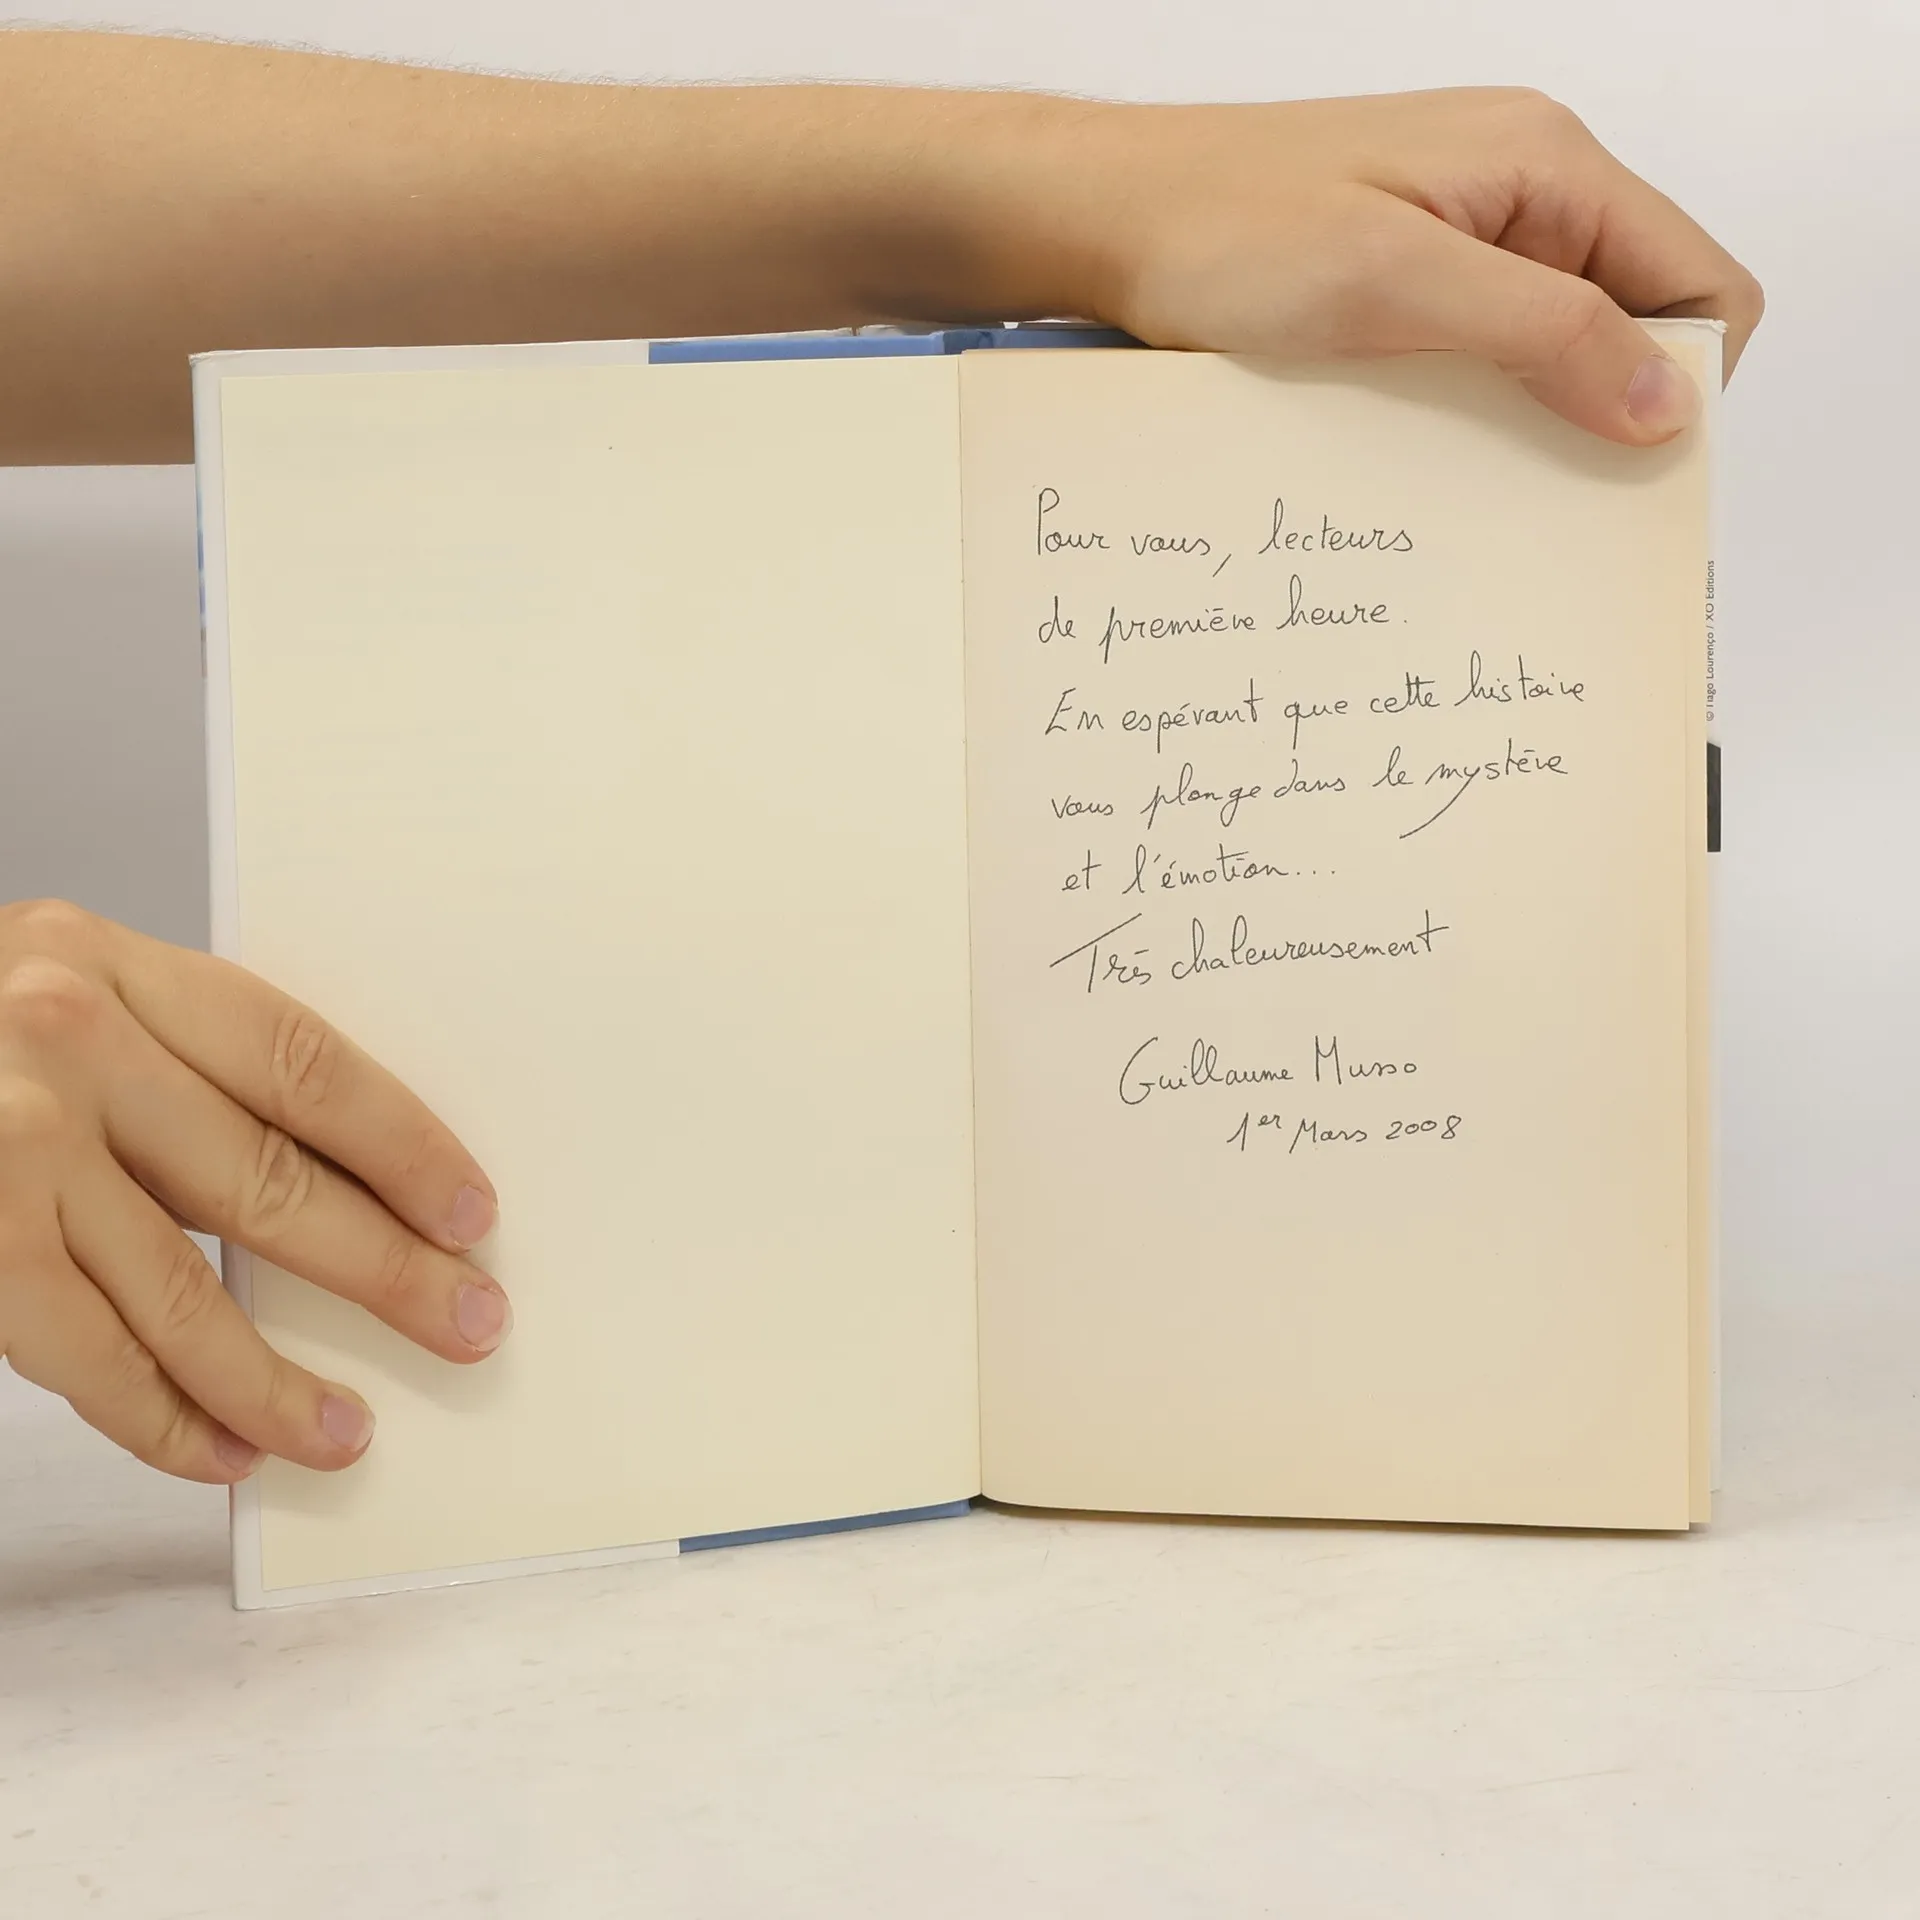 Pour vous, lecteurs
de première heure.
En espérant que cette histoire
vous plonge dans le mystère
et l'émotion...
Très chaleureusement
Guillaume Musso
1er Mars 2008
© Tiago Lourenço / XO Editions